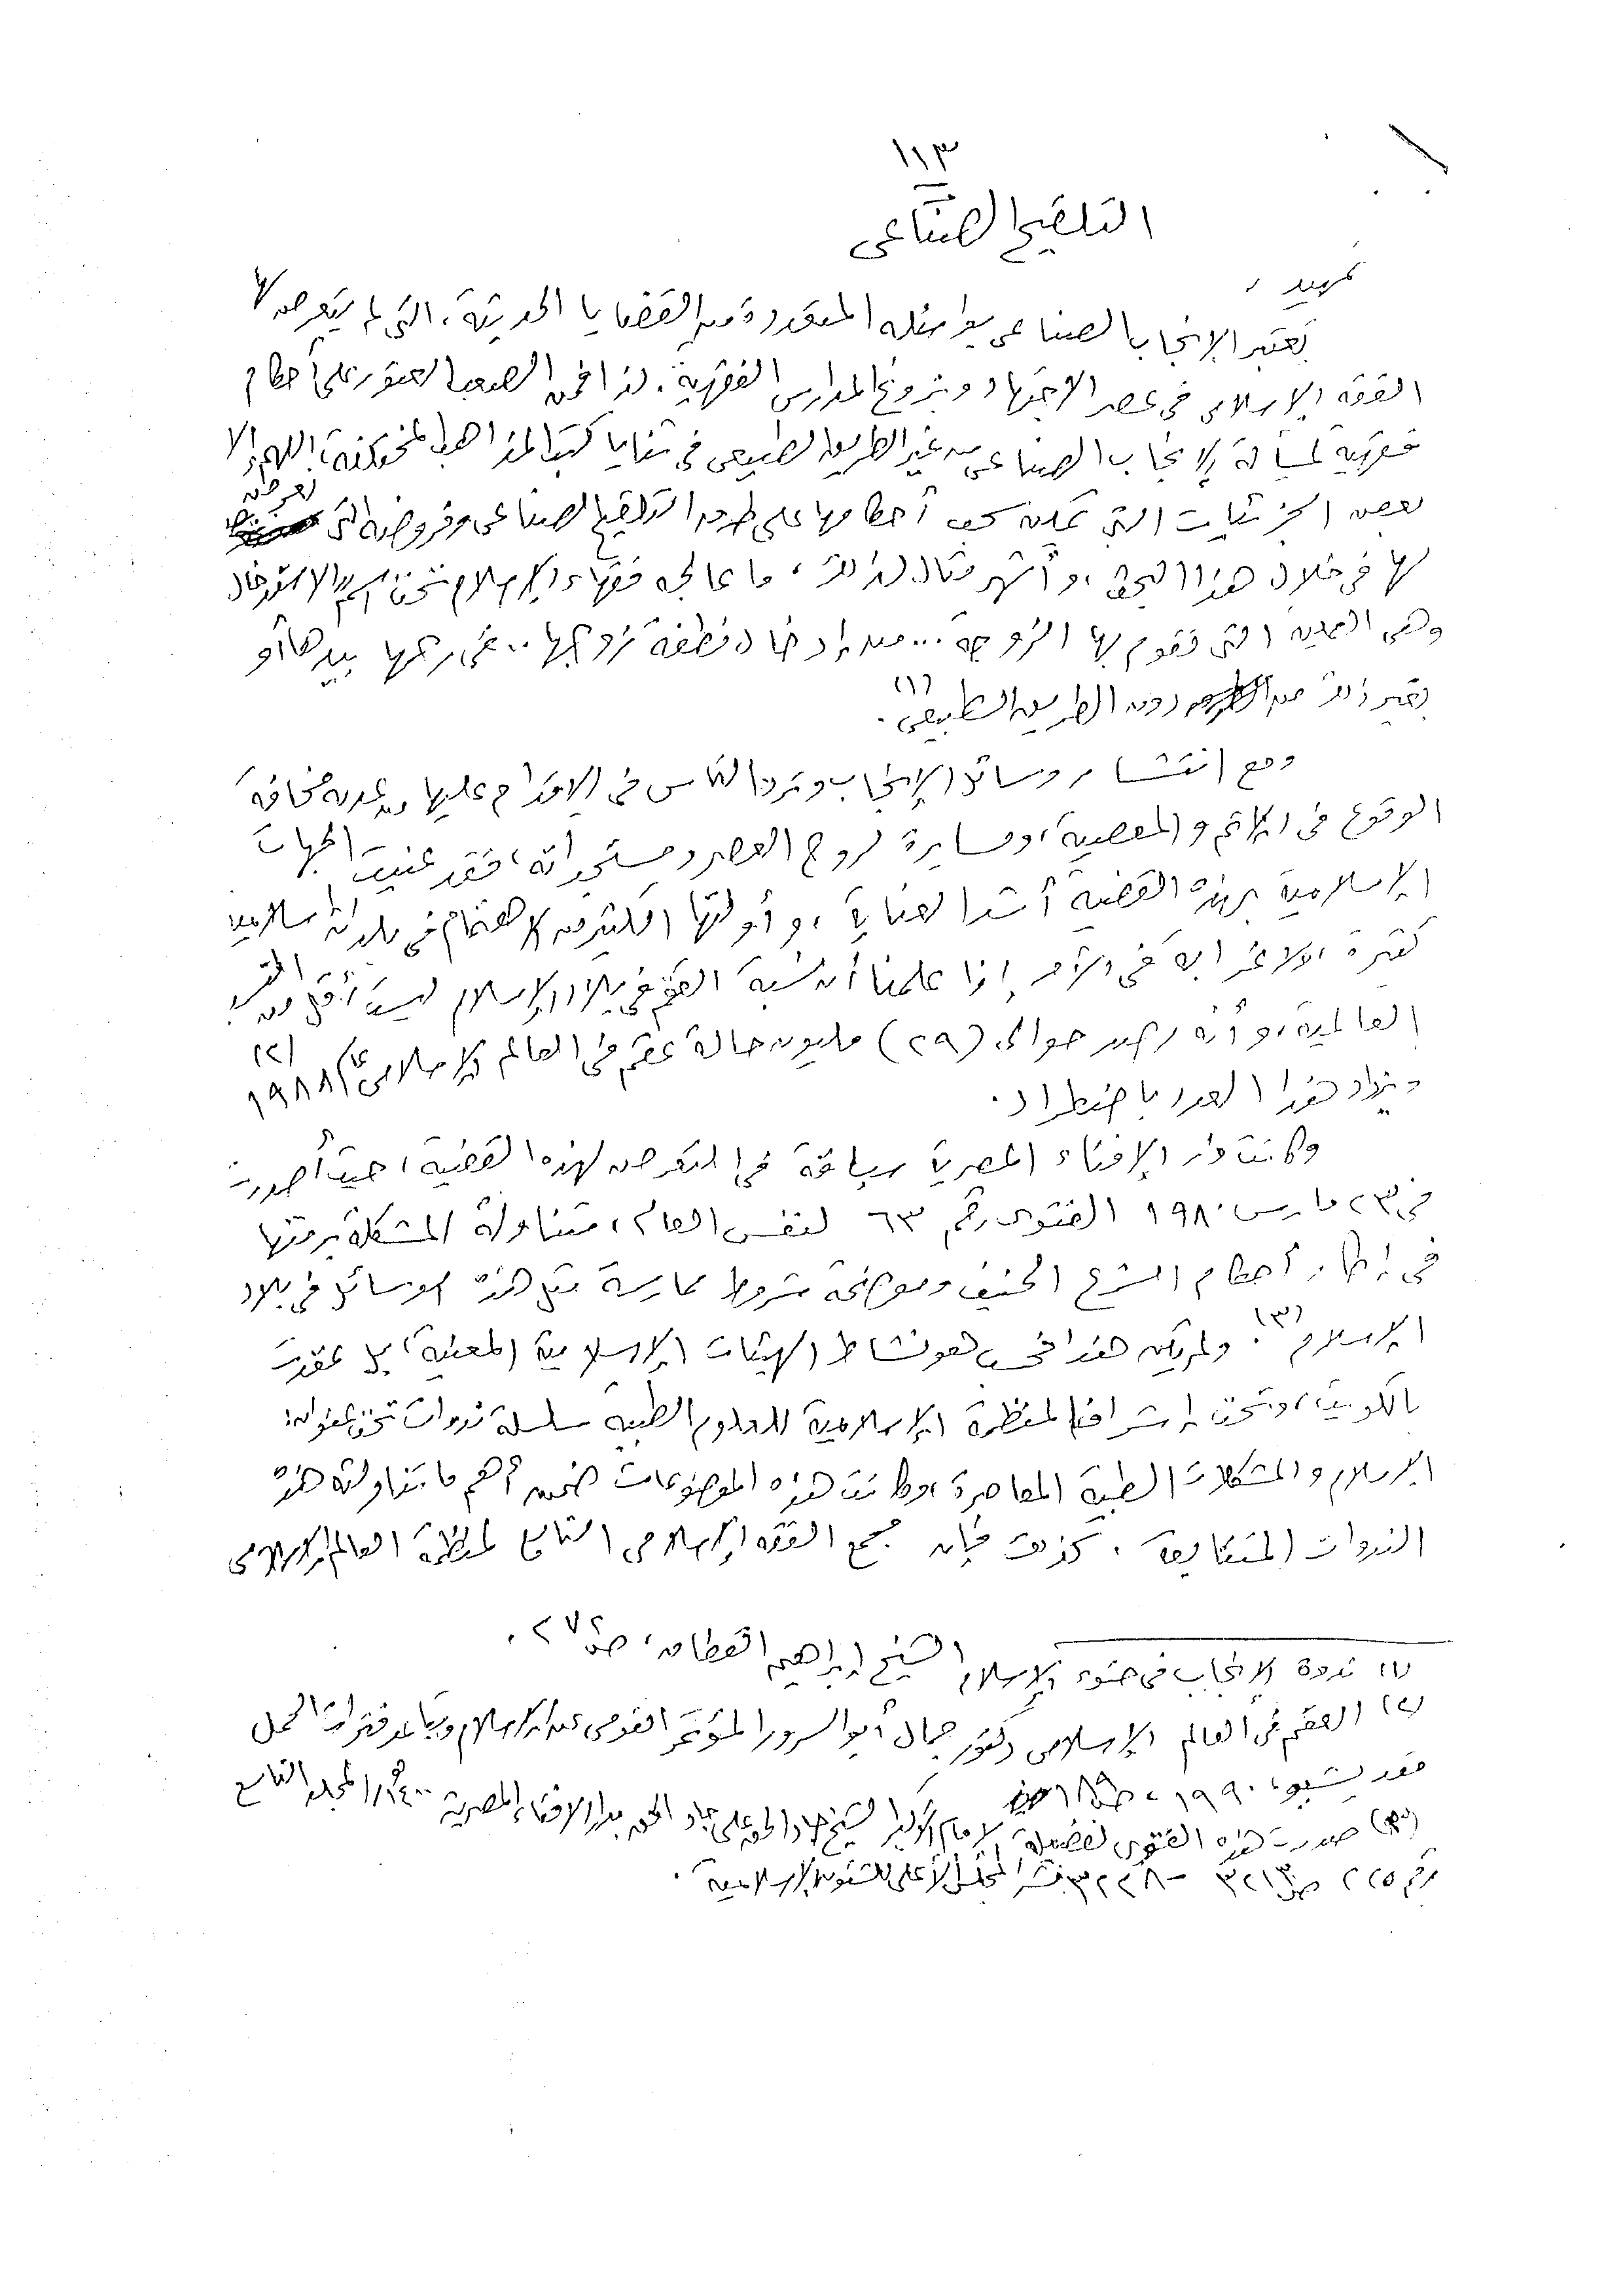 ١١٣
التلقيح الصناعى
تمهيد :
تعتبر الإنجاب الصناعى بوسائله المتعددة من القضايا الحديثة، التى لم يتعرض لها
الفقه الإسلامى فى عصر الاجتهاد وبزوغ المدارس الفقهية. لذا فمن الصعب العثور على أحكام
فقهية لمسألة الإنجاب الصناعى من غير الطريق الطبيعى فى ثنايا كتب المذاهب المختلفة، اللهم إلا
بعض الجزئيات التى يمكن سحب أحكامها على طرق التلقيح الصناعى وفروضه التى نعرض
لها فى خلال هذا البحث، وأشهر مثال لذلك، ما عالجه فقهاء الإسلام تحت اسم الاستدخال
وهى العملية التى تقوم بها الزوجة ... من إدخال نطفة زوجها .. فى رحمها بيدها أو
بغير ذلك من الطرق دون الطريق الطبيعى (١).
ومع انتشار وسائل الإنجاب وتردد الناس فى الإقدام عليها من عدمه مخافة
الوقوع فى الإثم والمعصية، ومسايرة لروح العصر ومستجداته، فقد عنيت الجهات
الإسلامية بهذه القضية أشد العناية، وأولتها الكثير من الاهتمام فى بلدان إسلامية
كثيرة، ولا غرابة فى الأمر إذا علمنا أن نسبة العقم فى بلاد الإسلام ليست أقل من النسب
العالمية، وأنه رصد حوالى (٢٩) مليون حالة عقم فى العالم الإسلامى عام ١٩٨٨ (٢)
ويزداد هذا العدد باضطراد.
وكانت دار الإفتاء المصرية سباقة فى التعرض لهذه القضية، حيث أصدرت
فى ٢٣ مارس ١٩٨٠ الفتوى رقم ٦٣ لنفس العام، متناولة المشكلة برمتها
فى إطار أحكام الشرع الحنيف وموضحة شروط ممارسة مثل هذه الوسائل فى بلاد
الإسلام (٣). ولم يكن هذا فحسب هو نشاط الهيئات الإسلامية المعنية، بل عقدت
بالكويت، وتحت إشراف المنظمة الإسلامية للعلوم الطبية سلسلة ندوات تحت عنوان:
الإسلام والمشكلات الطبية المعاصرة، وكانت هذه الموضوعات ضمن أهم ما تناولته هذه
الندوات المتتابعة. كذلك فإن مجمع الفقه الإسلامى التابع لمنظمة العالم الإسلامى
(١) ندوة الإنجاب فى ضوء الإسلام، الشيخ إبراهيم القطان، ص ٢٧٢.
(٢) العقم فى العالم الإسلامى دكتور جمال أبو السرور المؤتمر القومى عن الإسلام وتباعد فترات الحمل
مقديشيو، ١٩٩٠، ص ١٨٩
(٣) صدرت هذه الفتوى لفضيلة الإمام الأكبر الشيخ جاد الحق على جاد الحق بدار الافتاء المصرية ١٤٠٠هـ المجلد التاسع
رقم ٢٢٥ ص ٣٢١٣ - ٣٢٢٨ نشر المجلس الأعلى للشئون الإسلامية.